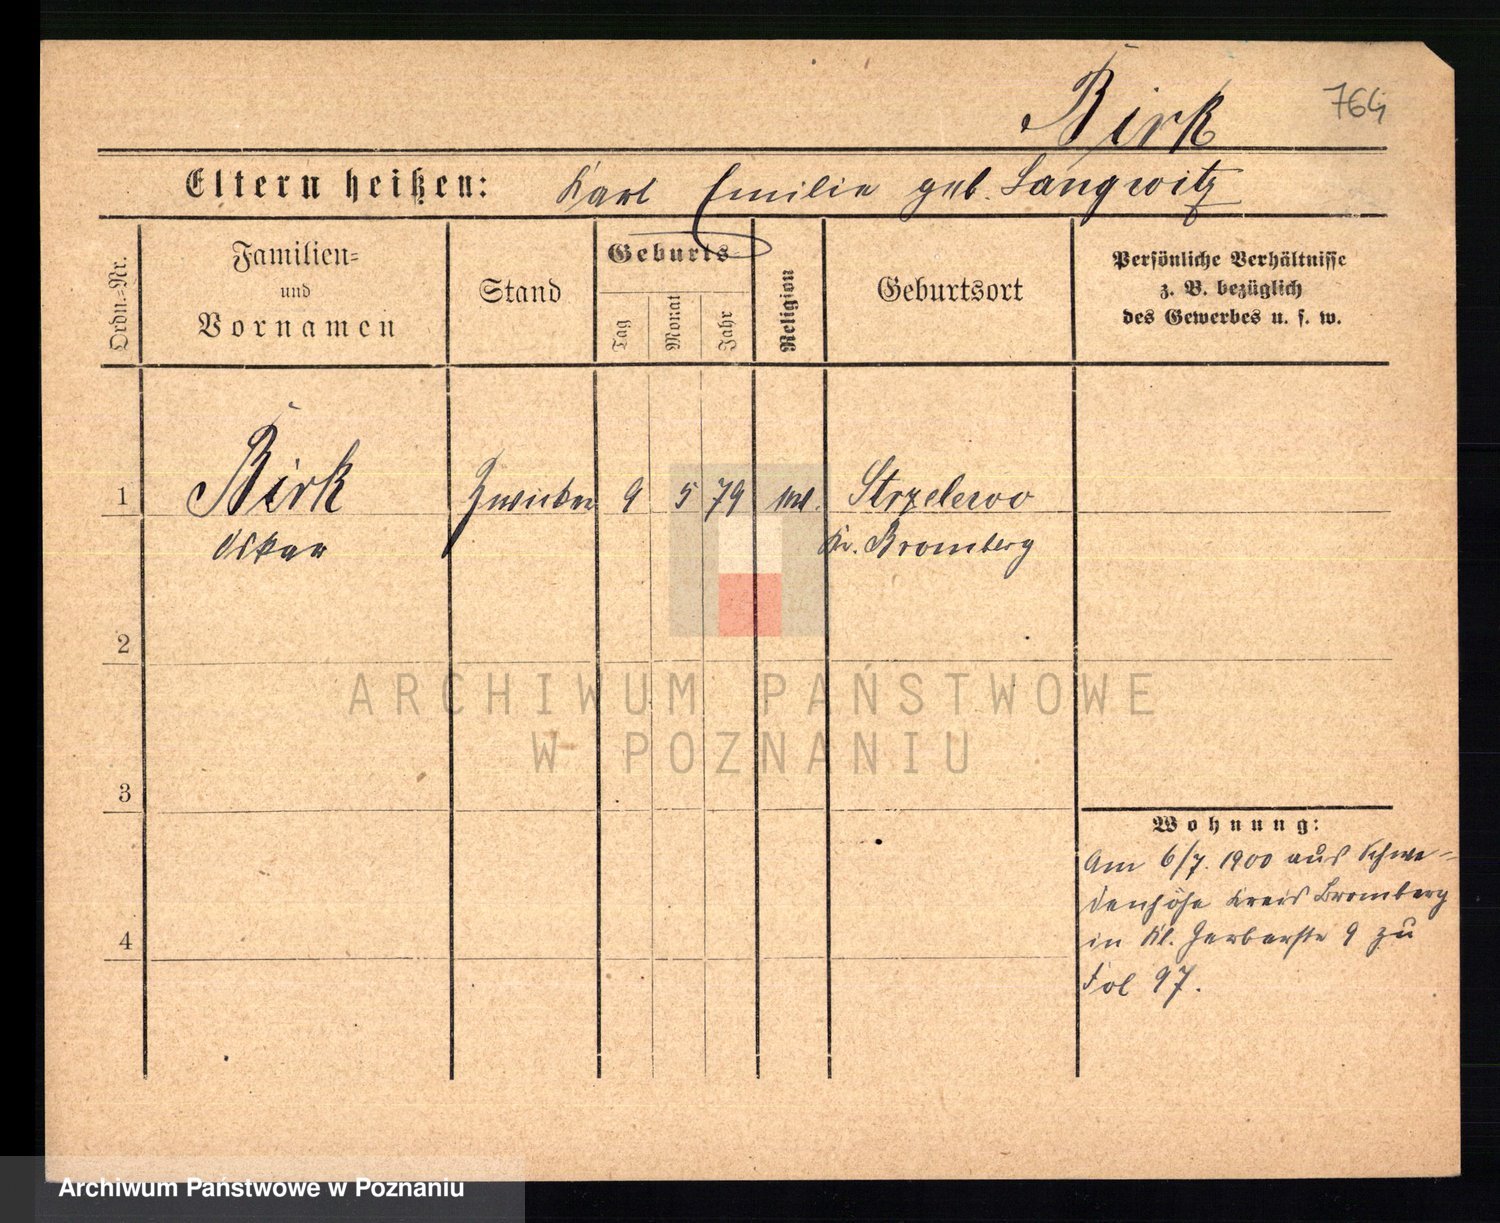 Birk
764
Eltern heißen: Karl Emilie geb. Langwitz
Ordn.-Nr.
Familien-
und
Vornamen
Stand
Geburts-
Tag
Monat
Jahr
Religion
Geburtsort
Persönliche Verhältnisse
z. B. bezüglich
des Gewerbes u. s. w.
1
Birk
9 5 79
Strzelewo
Oskar
Kr. Bromberg
2
3
4
Wohnung:
Am 6/7. 1900 aus Schwe-
denhöhe Kreis Bromberg
in Kl. Gerberstr 9 zu
Fol 97.
ARCHIWUM PAŃSTWOWE
W POZNANIU
Archiwum Państwowe w Poznaniu